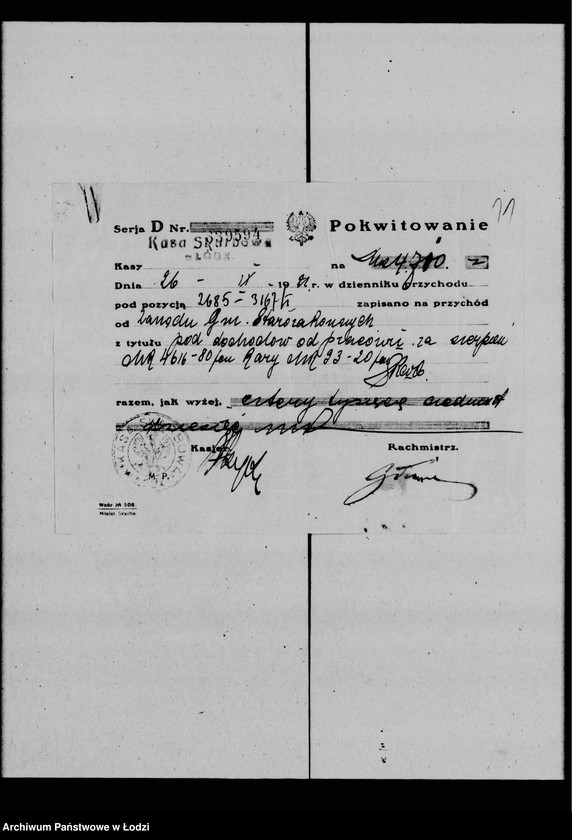 71
Serja D Nr. 399594 Pokwitowanie
Kasa Skarbowa
Kasy na Mk 4.710.
Dnia 26 - IX - 1921 r. w dzienniku przychodu
pod pozycją 2685 - 3167/VI zapisano na przychód
od Zarządu Gm. Starozakonnych
z tytułu pod dochodow od pracowń. za sierpień
Mk 4616-80/fen Kary Mk 93-20/fen
razem, jak wyżej, cztery tysiące siedmset
dziesięć mk
Kasjer Rachmistrz.
M. P.
Wzór № 106
Minist. Skarbu
Archiwum Państwowe w Łodzi